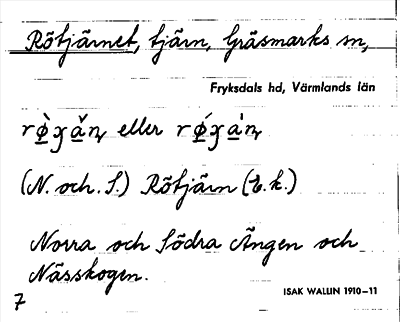 Rötjärnet, tjärn, Gräsmarks sn,
Fryksdals hd, Värmlands län
eller
(N. och. S.) Rötjärn (t.k.)
Norra och Södra Ängen och
Nässkogen.
7
ISAK WALLIN 1910–11